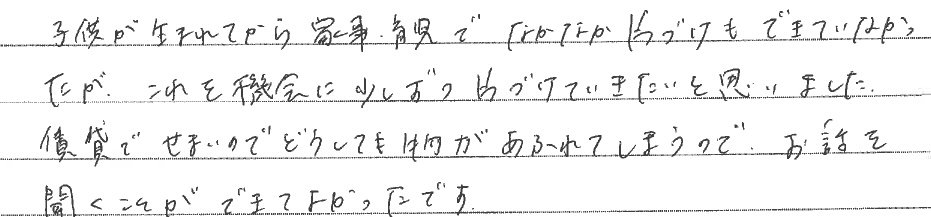 子供が生まれてから家事・育児でなかなか片づけもできていなかっ
たが、これを機会に少しずつ片づけていきたいと思いました。
賃貸でせまいのでどうしても物があふれてしまうので、お話を
聞くことができてよかったです。